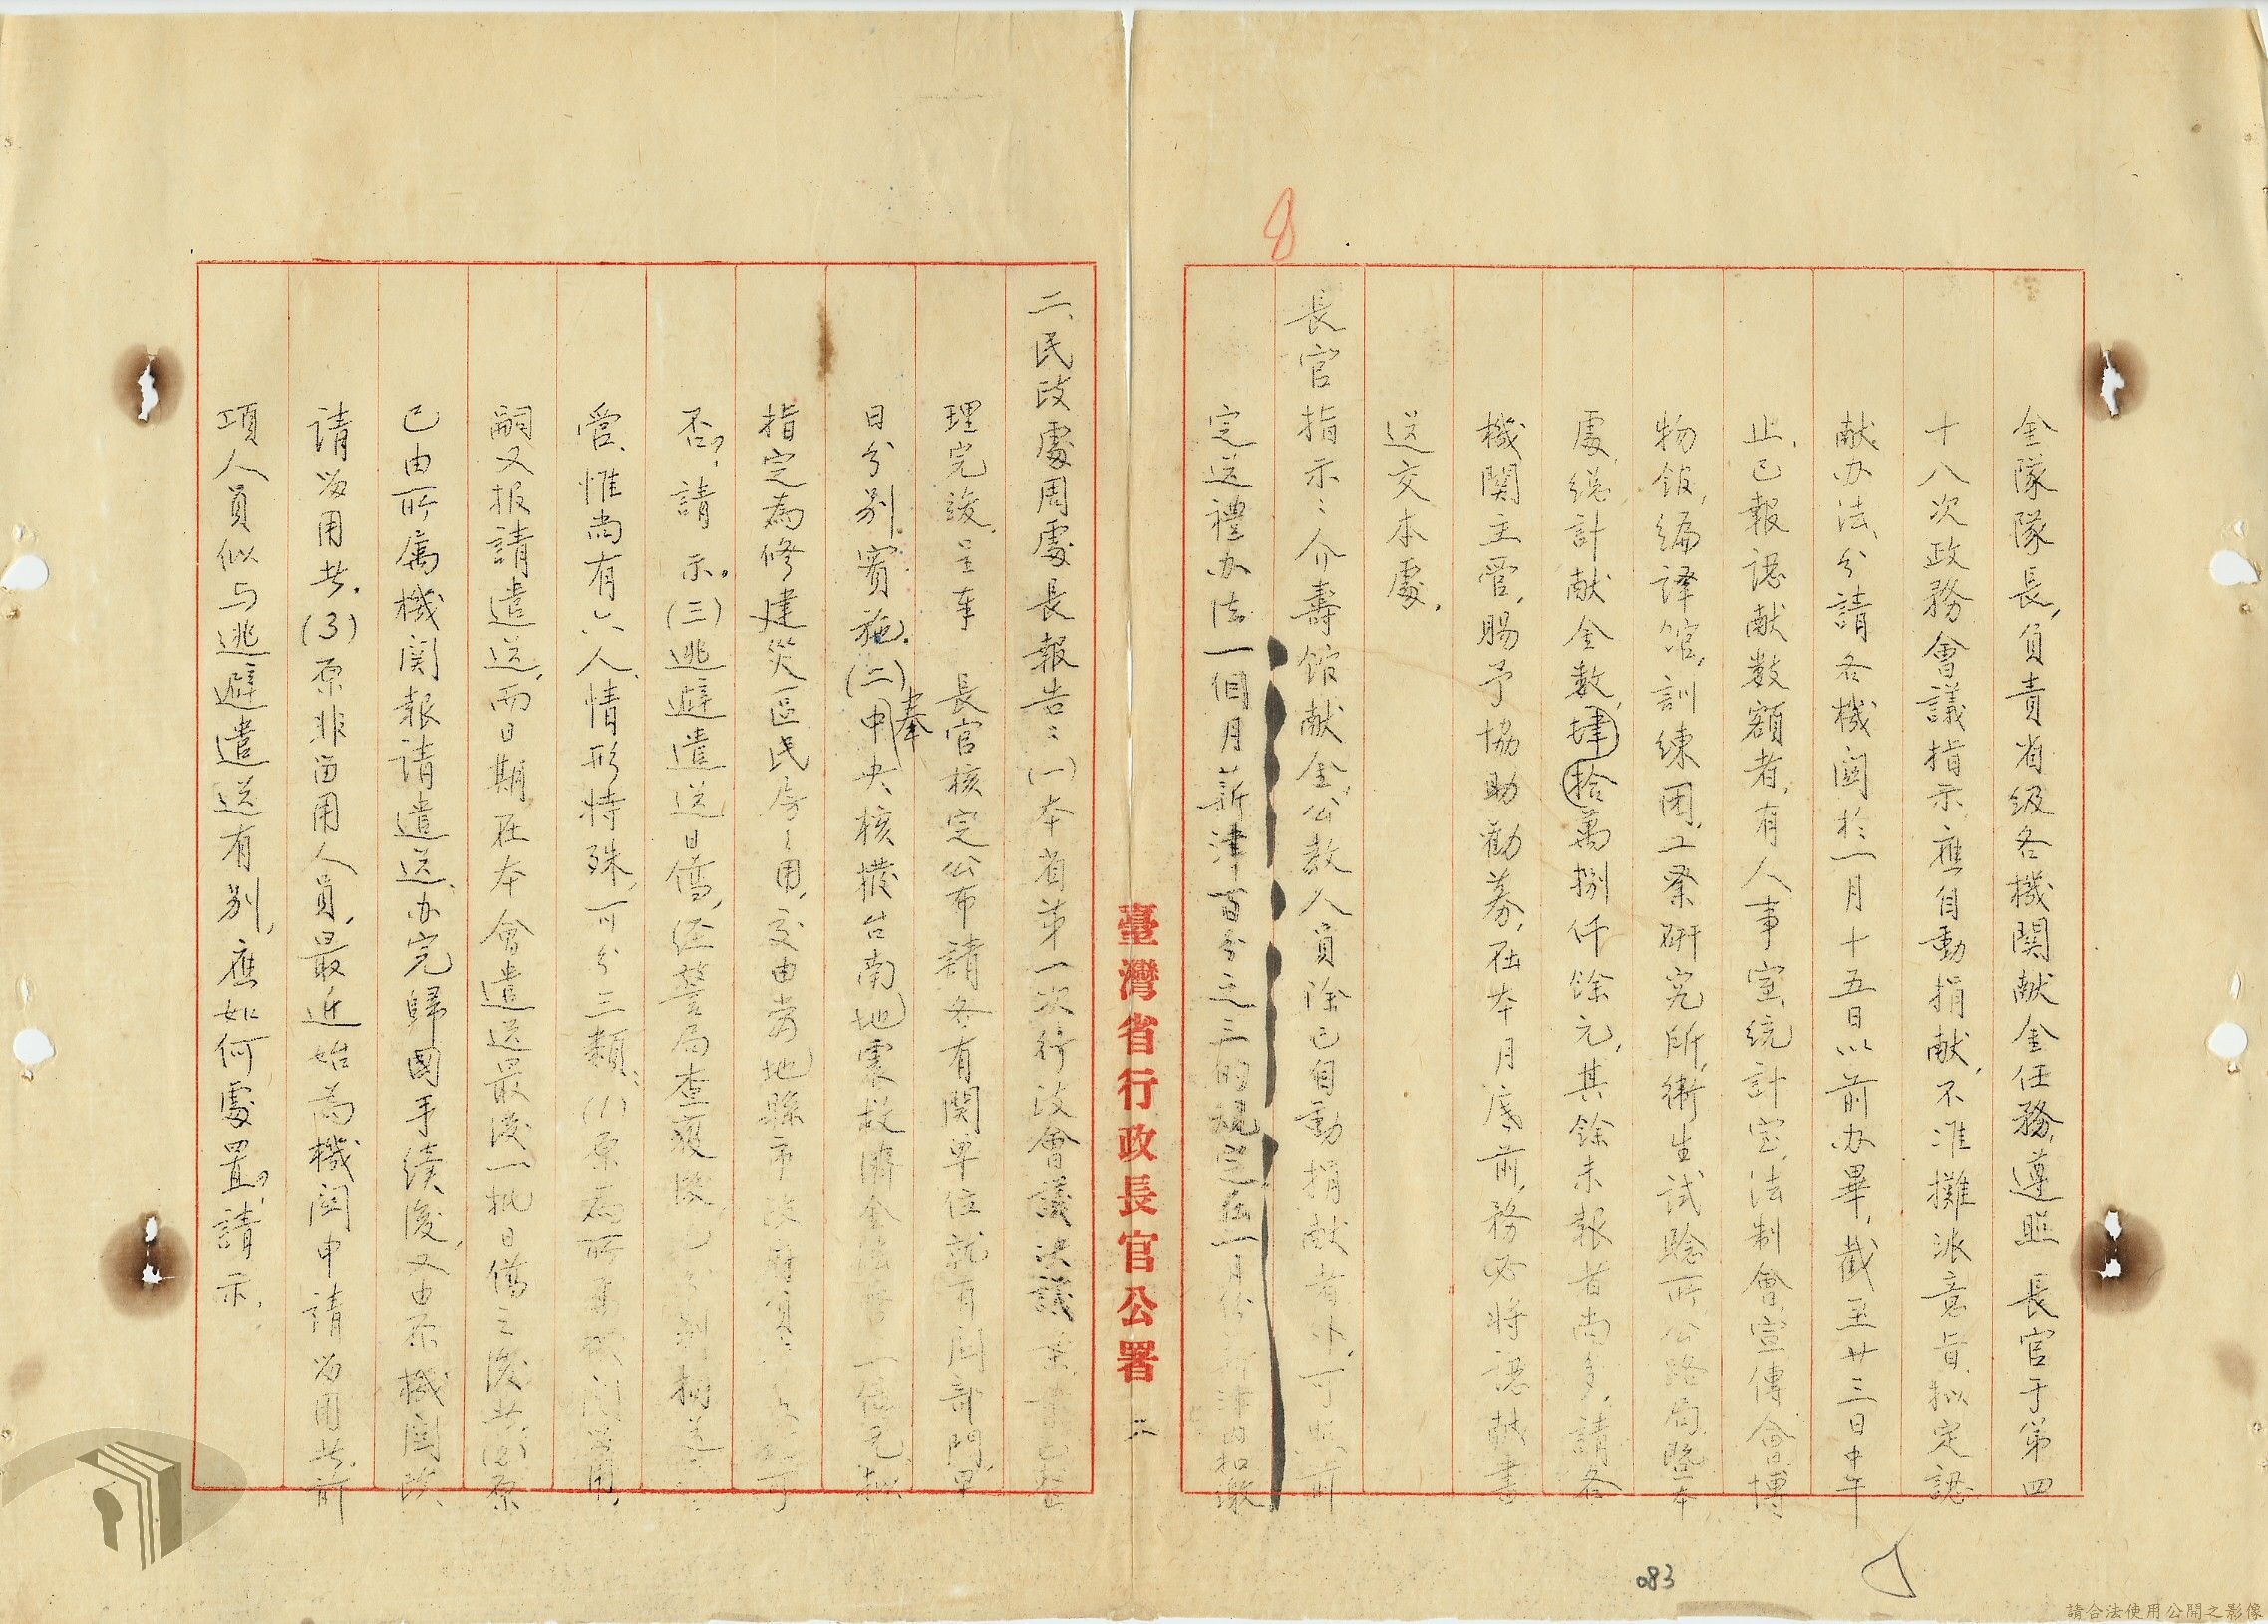 金隊隊長,負責省级各機関献金任務,遵照 長官于第四
十八次政務會議指示應自動捐献,不准攤派意旨,拟定認
献办法,分請各機関於一月十五日以前办畢,截至廿三日中午
止,已報認献数額者,有人事室,統計室,法制會,宣傳會,博
物館,編譯館,訓練团,工業研究所,衛生試驗所,公路局,暨本
處,總計献金数,肆拾萬捌仟餘元,其餘未報者尚多,請各
機関主管,賜予協助勸募,在本月底前,務必將認献書
送交本處.
長官指示:介壽館献金,公教人員除已自動捐献者外,可照前
完送禮办法一個月薪津百分之三的規定在一月份薪津内扣繳
8
臺灣省行政長官公署
二
二、民政處周處長報告:(一)本省第一次行政會議決議案,業已整
理完竣,呈奉 長官核定公布請各有関单位,就有関部門,早
日分別實施.(二)奉中央核撥台南地震救濟金法幣一億元,拟
指定為修建災區民房之用,交由當地縣市政府
否?請 示.(三)逃避遣送日僑,經警局查獲
管,惟尚有六人,情形特殊,可分三類:(1)原為所有機関留用,
嗣又报請遣送,而日期在本會遣送最後一批日僑之後者,(2)原
已由所属機関報请遣送,办完歸國手續後,又由原機関改
请留用者.(3)原非留用人員,最近始為機関申請留用者,前
項人員似与逃避遣送有别,應如何處置?請示.
083
請合法使用公開之影像